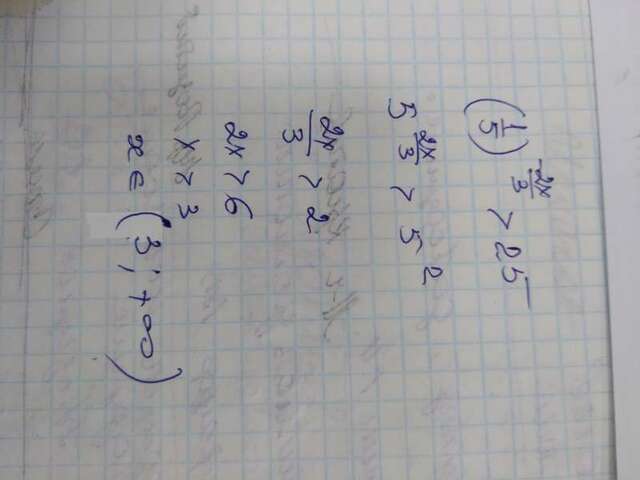 (1/5)^(-2x/3) > 25
5^(2x/3) > 5^2
2x/3 > 2
2x > 6
x > 3
x ∈ (3; +∞)